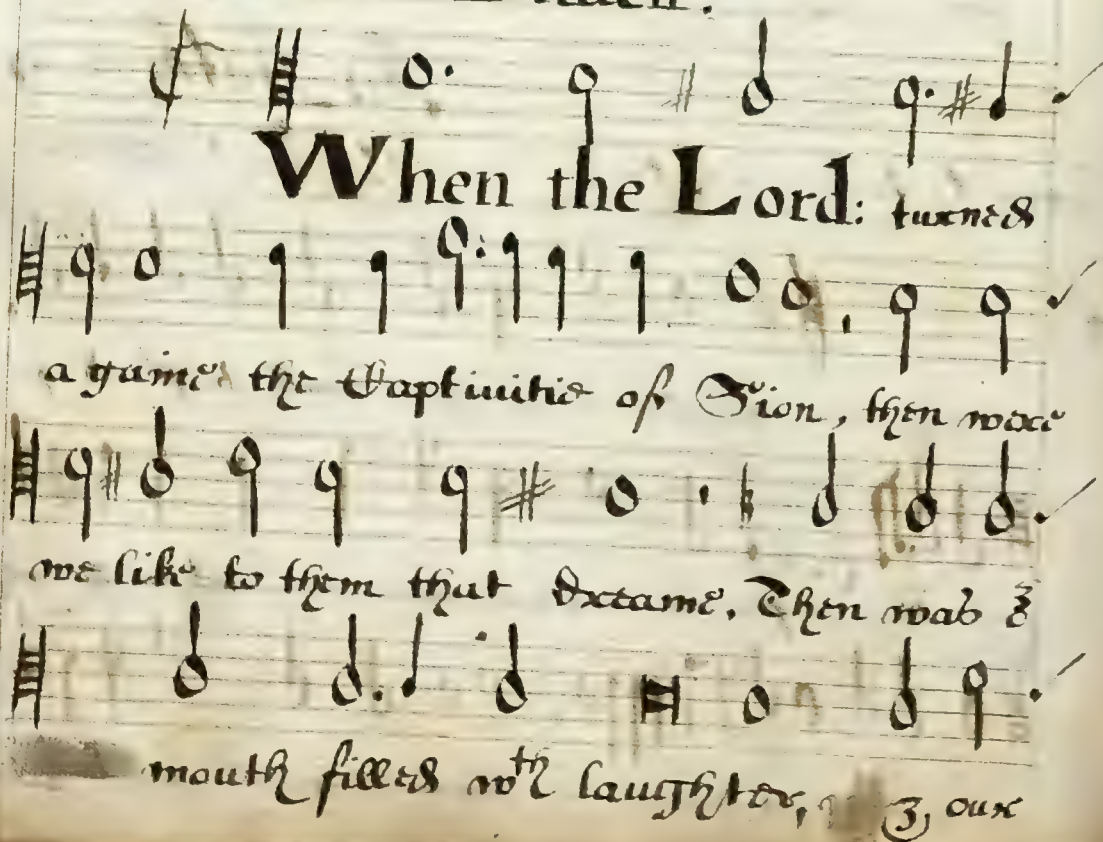 When the Lord: turned
a gaine the Captiuitie of Sion, then were
we like to them that dreame, Then was
mouth filled wth laughter, our